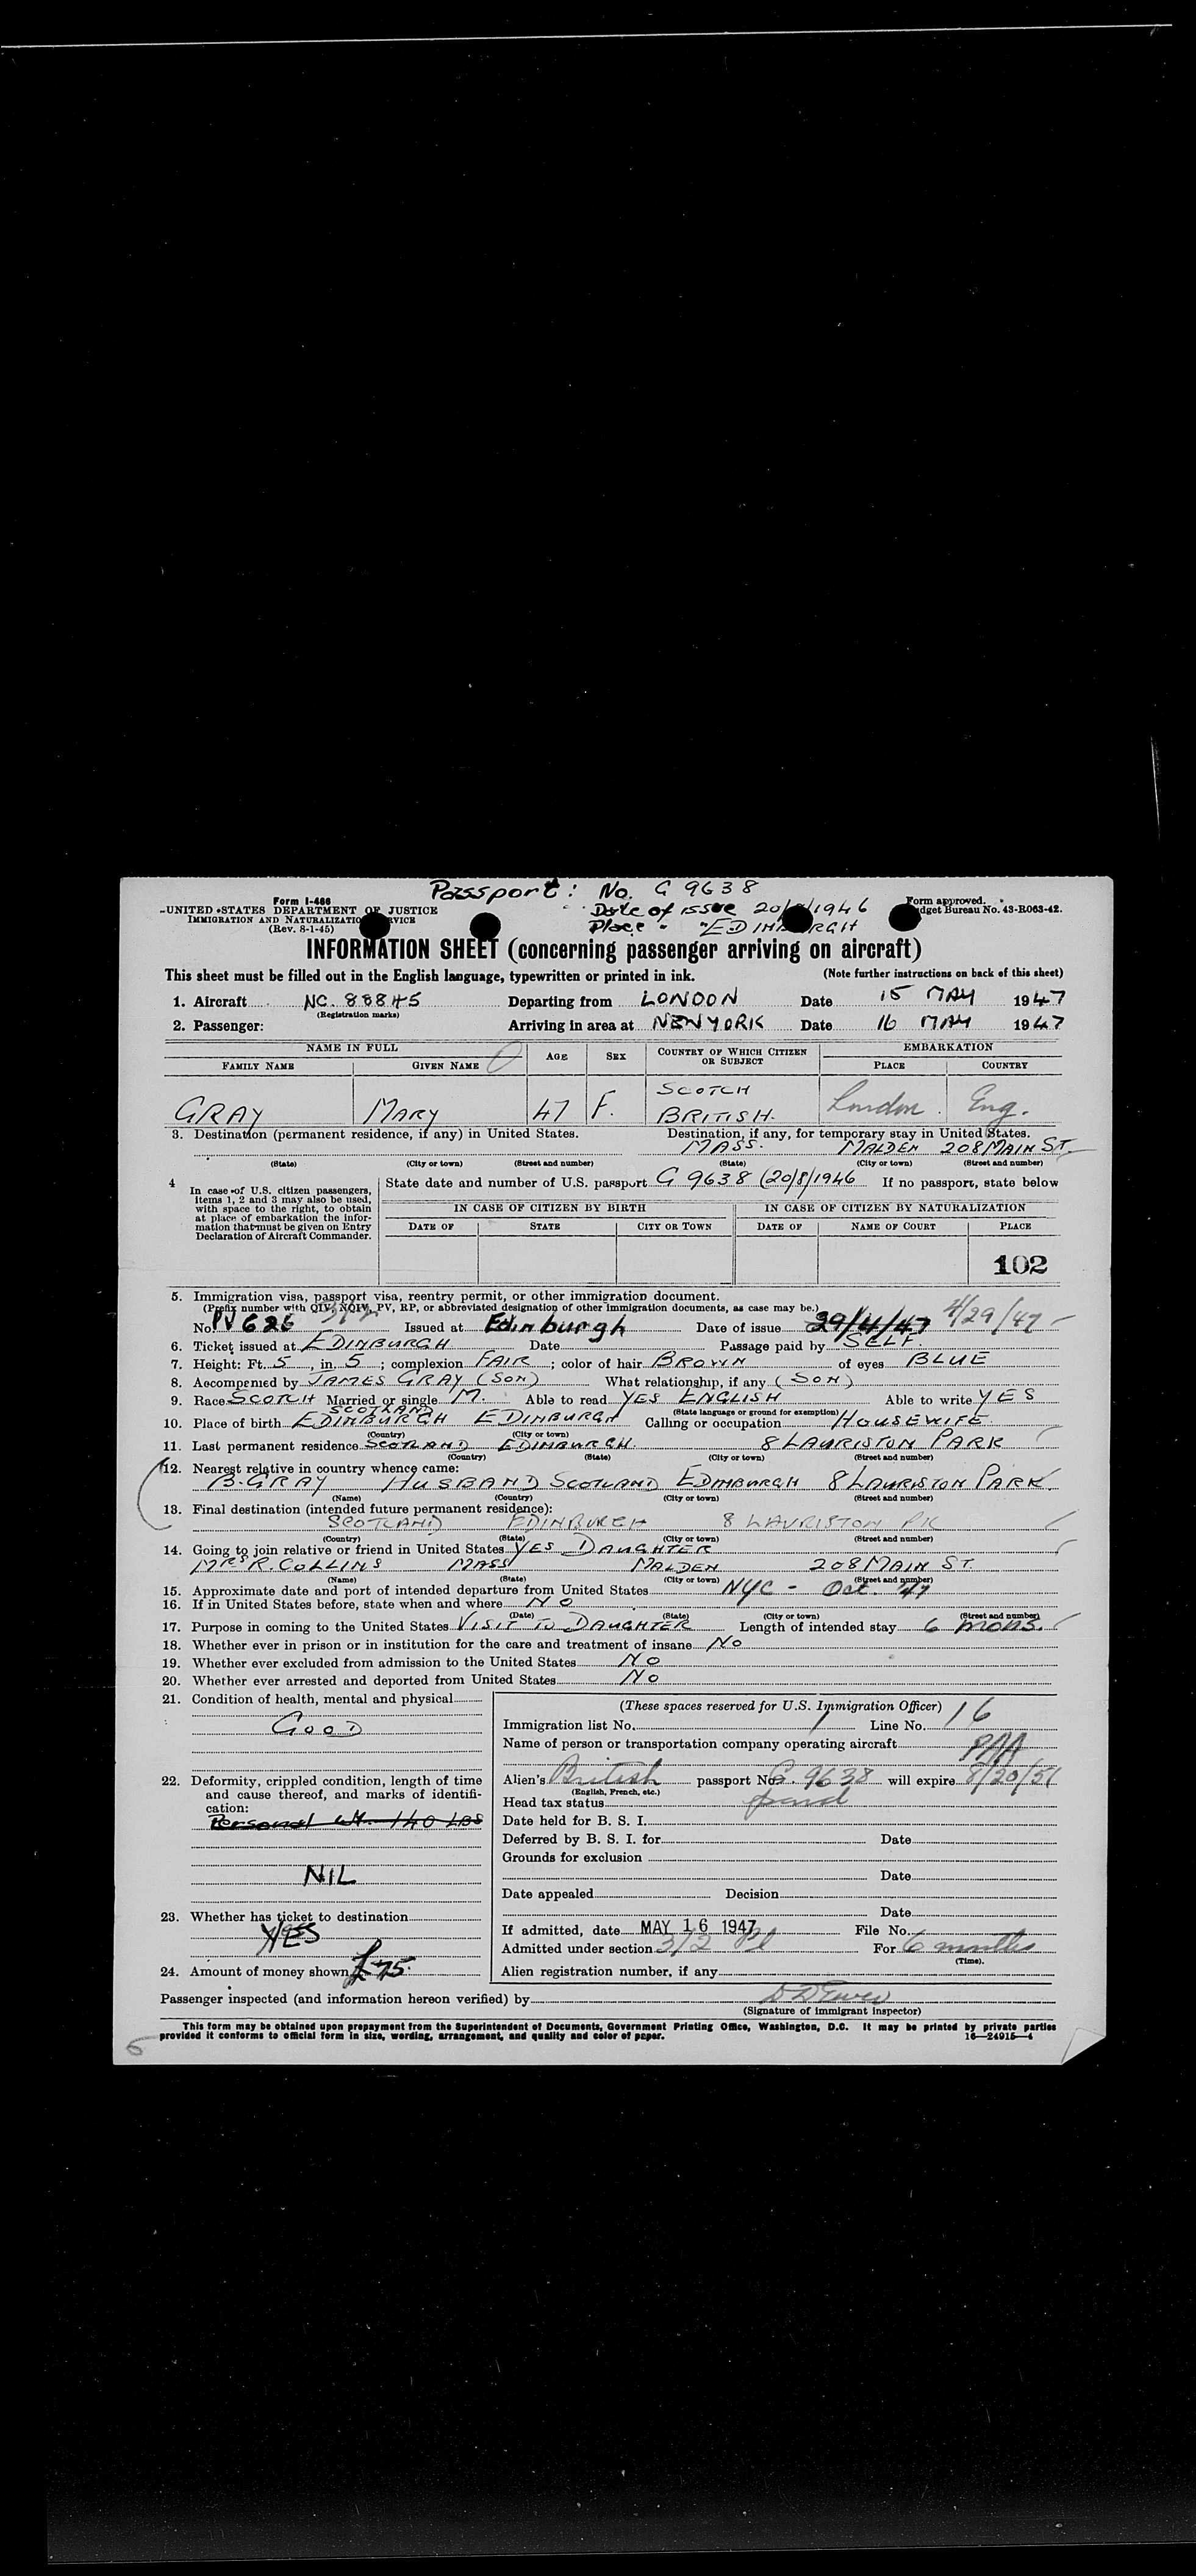 Passport: No. C 9638
Form I-466
UNITED STATES DEPARTMENT OF JUSTICE
Date of issue 20/8/1946
Form approved.
IMMIGRATION AND NATURALIZATION SERVICE
Budget Bureau No. 43-R063-42.
(Rev. 8-1-45)
Place - "EDINBURGH
INFORMATION SHEET (concerning passenger arriving on aircraft)
This sheet must be filled out in the English language, typewritten or printed in ink. (Note further instructions on back of this sheet)
1. Aircraft NC. 88845 Departing from LONDON Date 15 MAY 1947
(Registration marks)
2. Passenger: Arriving in area at NEW YORK Date 16 MAY 1947
NAME IN FULL AGE SEX COUNTRY OF WHICH CITIZEN OR SUBJECT EMBARKATION
FAMILY NAME GIVEN NAME PLACE COUNTRY
SCOTCH
GRAY MARY 47 F. BRITISH. London. Eng.
3. Destination (permanent residence, if any) in United States. Destination, if any, for temporary stay in United States.
MASS. MALDEN 208 MAIN ST.
(State) (City or town) (Street and number) (State) (City or town) (Street and number)
4 In case of U.S. citizen passengers, items 1, 2 and 3 may also be used, with space to the right, to obtain at place of embarkation the information that must be given on Entry Declaration of Aircraft Commander.
State date and number of U.S. passport C 9638 (20/8/1946 If no passport, state below
IN CASE OF CITIZEN BY BIRTH IN CASE OF CITIZEN BY NATURALIZATION
DATE OF STATE CITY OR TOWN DATE OF NAME OF COURT PLACE
102
5. Immigration visa, passport visa, reentry permit, or other immigration document.
(Prefix number with QIV, NQIV, PV, RP, or abbreviated designation of other immigration documents, as case may be.)
No. PV 626 Issued at Edinburgh Date of issue 29/4/47 4/29/47
6. Ticket issued at EDINBURGH Date Passage paid by SELF
7. Height: Ft. 5, in. 5; complexion FAIR; color of hair BROWN of eyes BLUE
8. Accompanied by JAMES GRAY (SON) What relationship, if any (SON)
9. Race SCOTCH Married or single M. Able to read YES ENGLISH Able to write YES
SCOTLAND (State language or ground for exemption)
10. Place of birth EDINBURGH EDINBURGH Calling or occupation HOUSEWIFE
(Country) (City or town)
11. Last permanent residence SCOTLAND EDINBURGH. 8 LAURISTON PARK
(Country) (State) (City or town) (Street and number)
12. Nearest relative in country whence came:
B. GRAY HUSBAND SCOTLAND EDINBURGH 8 LAURISTON PARK
(Name) (Country) (City or town) (Street and number)
13. Final destination (intended future permanent residence):
SCOTLAND EDINBURGH 8 LAURISTON PK
(Country) (State) (City or town) (Street and number)
14. Going to join relative or friend in United States YES DAUGHTER
MRS R. COLLINS MASS MALDEN 208 MAIN ST.
(Name) (State) (City or town) (Street and number)
15. Approximate date and port of intended departure from United States NYC - Oct. 47
16. If in United States before, state when and where NO
(Date) (State) (City or town) (Street and number)
17. Purpose in coming to the United States VISIT TO DAUGHTER Length of intended stay 6 MONS.
18. Whether ever in prison or in institution for the care and treatment of insane NO
19. Whether ever excluded from admission to the United States NO
20. Whether ever arrested and deported from United States NO
21. Condition of health, mental and physical
GOOD
22. Deformity, crippled condition, length of time and cause thereof, and marks of identification:
Personal wt. 140 LBS
NIL
23. Whether has ticket to destination
YES
24. Amount of money shown £75.
(These spaces reserved for U.S. Immigration Officer)
Immigration list No. 1 Line No. 16
Name of person or transportation company operating aircraft
PAA
Alien's British passport No. C. 9638 will expire 8/20/51
(English, French, etc.)
Head tax status paid
Date held for B. S. I.
Deferred by B. S. I. for Date
Grounds for exclusion
Date
Date appealed Decision
Date
If admitted, date MAY 16 1947 File No.
Admitted under section 3/2 For 6 months
(Time).
Alien registration number, if any
Passenger inspected (and information hereon verified) by
(Signature of immigrant inspector)
This form may be obtained upon prepayment from the Superintendent of Documents, Government Printing Office, Washington, D.C. It may be printed by private parties
provided it conforms to official form in size, wording, arrangement, and quality and color of paper. 16—24915-4
6